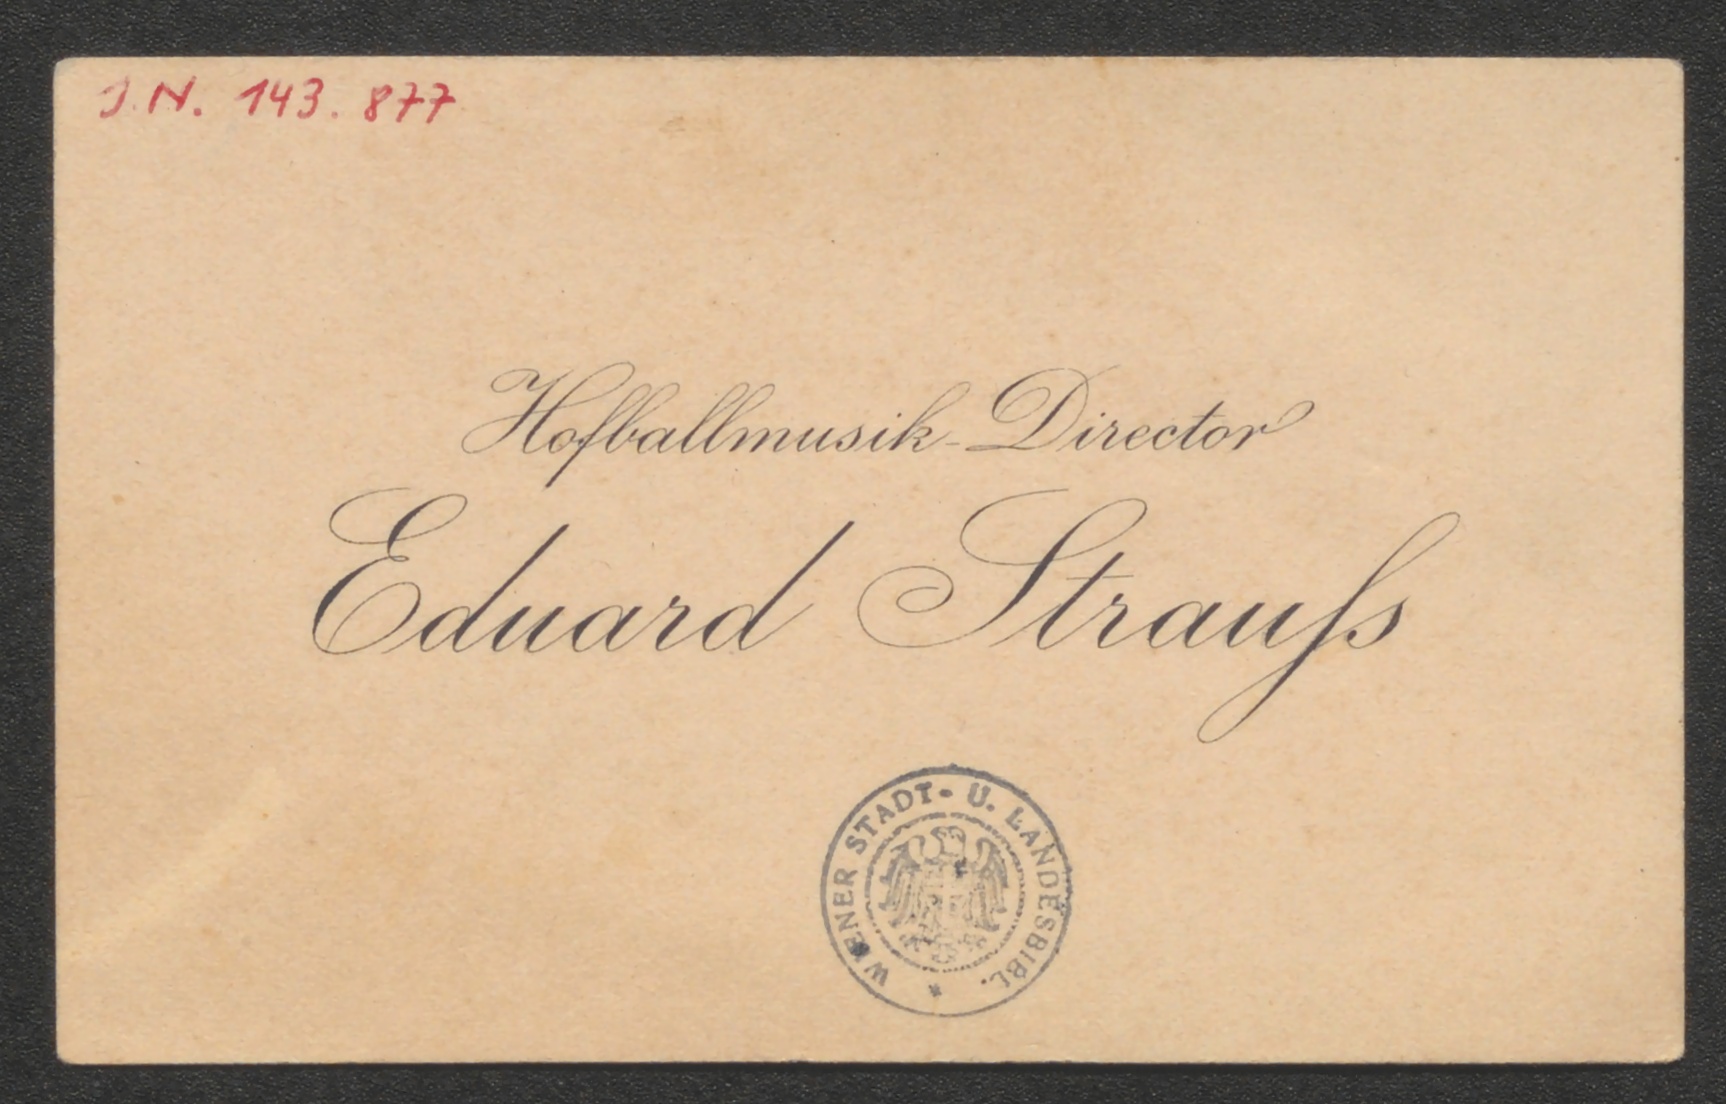 J.N. 143.877
Hofballmusik-Director
Eduard Strauſs
WIENER STADT- U. LANDESBIBL. *